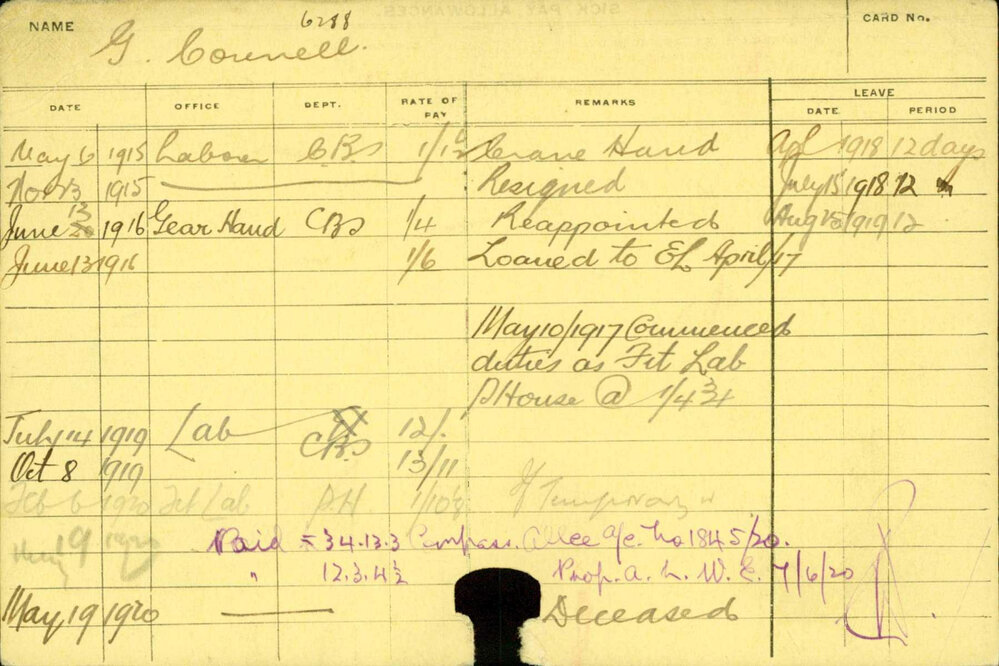 NAME 6288 CARD No.
G. Connell.
DATE OFFICE DEPT. RATE OF PAY REMARKS LEAVE DATE PERIOD
May 6 1915 Labour CBS Crane Hand Apl 1918 12 days
Nov 13 1915 Resigned July 15 1918 12
June 13 1916 Gear Hand CBS 1/4 Reappointed Aug 1919 12
June 13 1916 1/6 Loaned to EL April/17
May 10/1917 Commenced
duties as Fit Lab
P House @ 1/4¾
July 14 1919 Lab CBS 12/.
Oct 8 1919 13/11
Feb 6 1920 Fit Lab P.H. Temporary
19 1920 Paid £34.13.3 Compass. Allce a/c. No 1845/20.
" 12.3.4½ Prop. A. L. W. E. 7/6/20
May 19 1920 Deceased